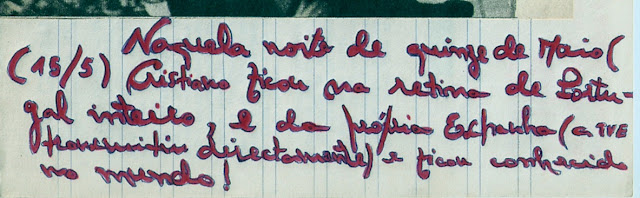 Naquela noite de quinze de Maio (
(15/5) Cristiano ficou na retina de Portu-
gal inteiro e da própria Espanha (a TVE
transmitiu directamente) e ficou conhecido
no mundo!